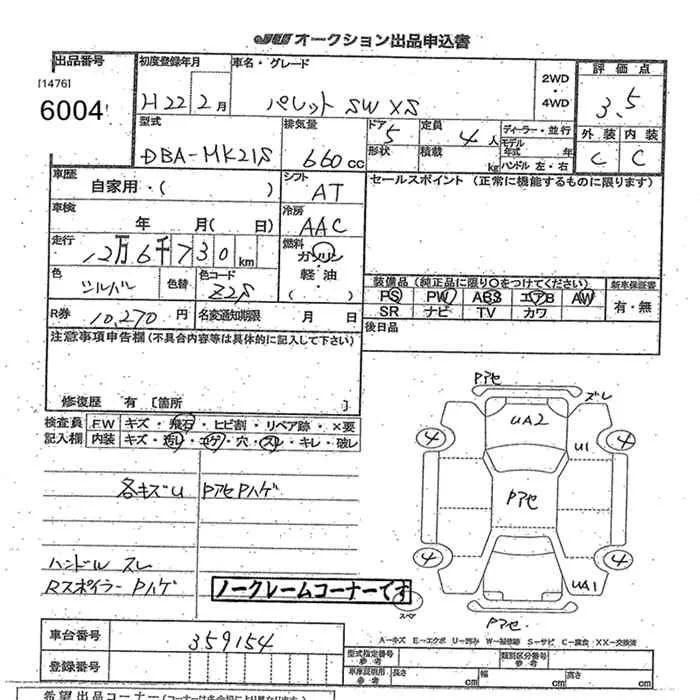 JU オークション出品申込書
出品番号 初度登録年月 車名・グレード 2WD ・ 4WD 評価点
[1476]
6004 H22 2月 パレット SW XS 3.5
型式 排気量 ドア 定員 ディーラー・並行 外装 内装
DBA-MK21S 660cc 5 4人 モデル年式 年 C C
形状 積載 kg ハンドル 左・右
車歴 シフト セールスポイント (正常に機能するものに限ります)
自家用・( ) AT
車検 冷房
年 月( 日) AAC
走行 燃料
12万6千730km ガソリン
軽油
( )
色 色替 色コード 装備品 (純正品に限り○をつけてください) 新車保証書
シルバ Z2S PS PW ABS エアB AW 有・無
R券 10,270円 名変通知期限 月 日 SR ナビ TV カワ
注意事項申告欄 (不具合内容等は具体的に記入して下さい) 後日品
修復歴 有 [箇所 ]
検査員 FW キズ・飛石・ヒビ割・リペア跡・×要
記入欄 内装 キズ・汚レ・コゲ・穴・スレ・キレ・破レ
Pアセ
ズレ
UA2
4 U1 4
Pアセ
各キズU PアセPハゲ
4 4
ハンドル スレ
Rスポイラー Pハゲ
UA1
ノークレームコーナーです
スペア
Pアセ
車台番号 359154
A…キズ E…エクボ U…凹み W…補修跡 S…サビ C…腐食 XX…交換済
登録番号
型式指定番号 参考 類別区分番号 参考
車庫証明用 参考 長さ cm 幅 cm 高さ cm
希望出品コーナー